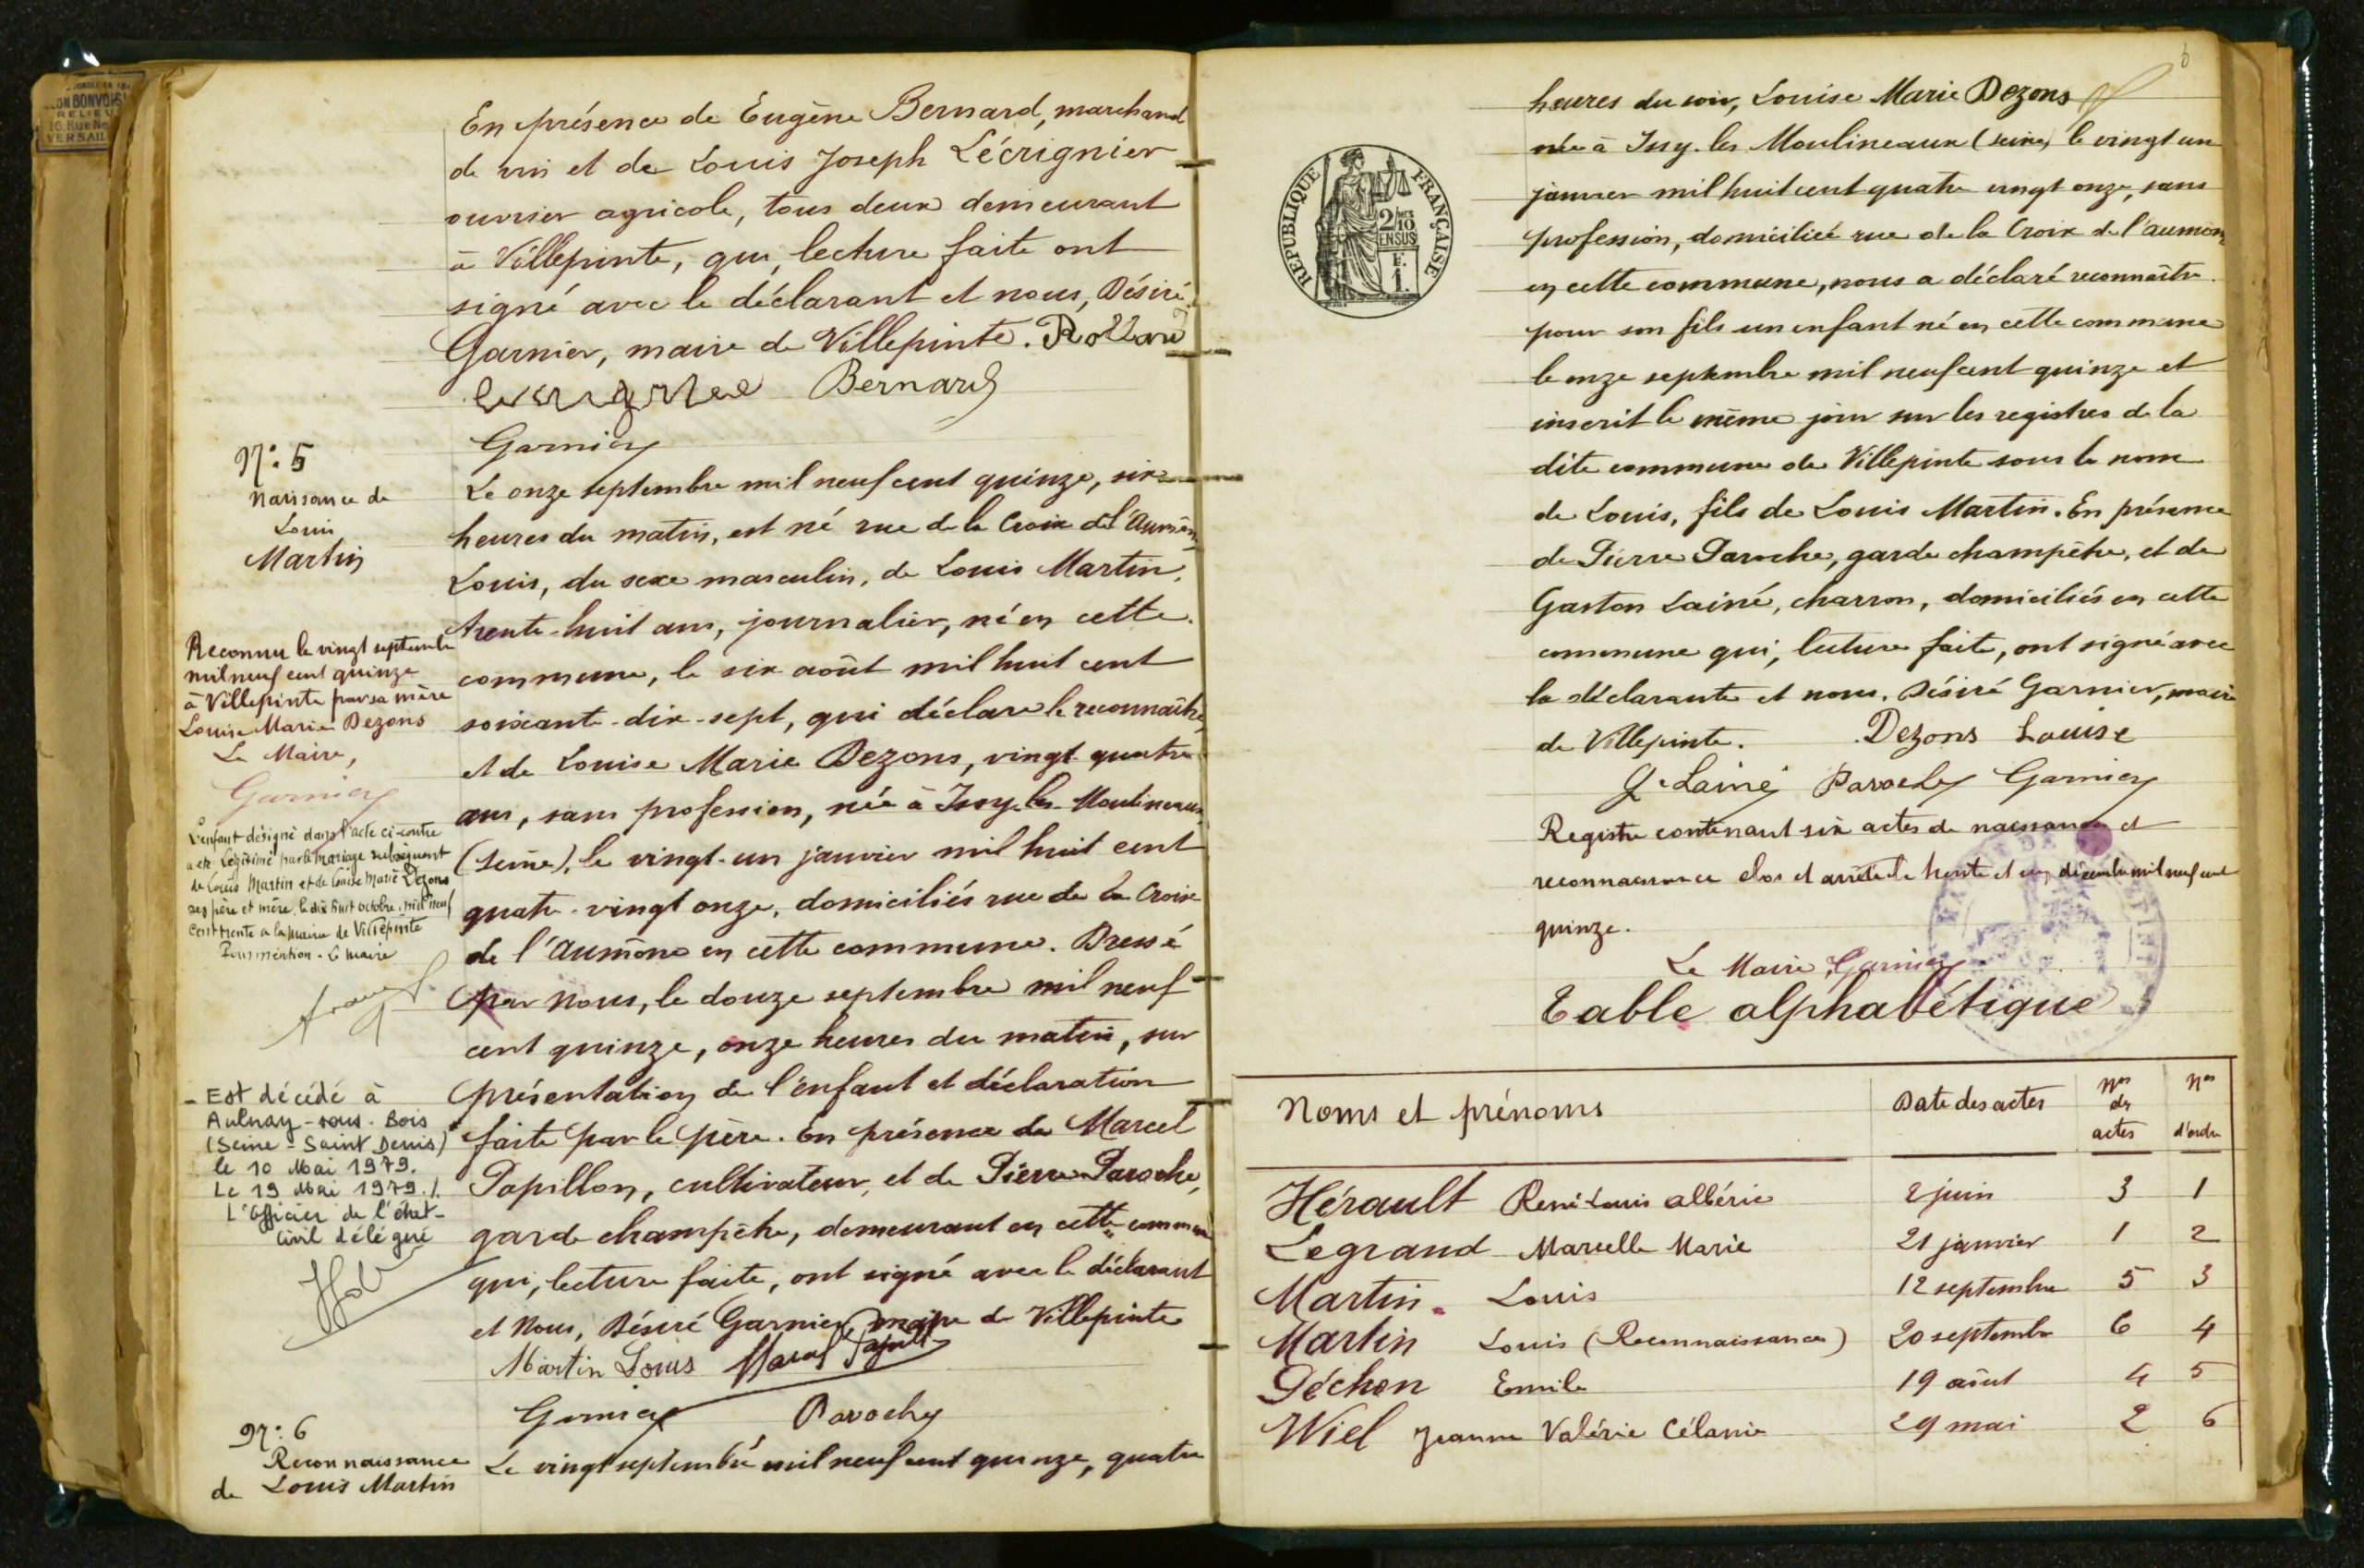 En présence de Eugène Bernard, marchand
de vin et de Louis Joseph Lécrignier
ouvrier agricole, tous deux demeurant
à Villepinte, qui, lecture faite ont
signé avec le déclarant et nous, Désiré
Garnier, maire de Villepinte.
Bernard
Garnier
N°: 5
Naissance de
Louis
Martin
Le onze septembre mil neuf cent quinze, six
heures du matin, est né rue de la Croix de l'Aumône
Louis, du sexe masculin, de Louis Martin,
trente-huit ans, journalier, né en cette
commune, le six août mil huit cent
soixante-dix-sept, qui déclare le reconnaître,
et de Louise Marie Dezons, vingt-quatre
ans, sans profession, née à Issy-les-Moulineaux
(Seine), le vingt-un janvier mil huit cent
quatre-vingt onze, domiciliés rue de la Croix
de l'Aumône en cette commune. Dressé
par Nous, le douze septembre mil neuf
cent quinze, onze heures du matin, sur
présentation de l'enfant et déclaration
faite par le père. En présence de Marcel
Papillon, cultivateur, et de Pierre Paroche,
garde champêtre, demeurant en cette commune
qui, lecture faite, ont signé avec le déclarant
et Nous, Désiré Garnier, maire de Villepinte
Martin Louis
Garnier Paroche
Reconnu le vingt septembre
mil neuf cent quinze
à Villepinte par sa mère
Louise Marie Dezons
Le Maire,
Garnier
L'enfant désigné dans l'acte ci-contre
a été légitimé par le mariage subséquent
de Louis Martin et de Louise Marie Dezons
ses père et mère, le dix huit octobre mil neuf
cent trente à la mairie de Villepinte
Pour mention. Le maire
- Est décédé à
Aulnay-sous-Bois
(Seine-Saint Denis)
le 10 Mai 1979.
Le 19 Mai 1979./.
L'Officier de l'état-
civil délégué
N°: 6
Reconnaissance
de Louis Martin
Le vingt septembre mil neuf cent quinze, quatre
RELIEUR
VERSAIL
RÉPUBLIQUE FRANÇAISE
2/10
EN SUS
F.
1.
heures du soir, Louise Marie Dezons
née à Issy-les Moulineaux (Seine) le vingt un
janvier mil huit cent quatre vingt onze, sans
profession, domiciliée rue de la Croix de l'aumône
en cette commune, nous a déclaré reconnaître
pour son fils un enfant né en cette commune
le onze septembre mil neuf cent quinze et
inscrit le même jour sur les registres de la
dite commune de Villepinte sous le nom
de Louis, fils de Louis Martin. En présence
de Pierre Paroche, garde champêtre, et de
Gaston Lainé, charron, domiciliés en cette
commune qui, lecture faite, ont signé avec
la déclarante et nous. Désiré Garnier, maire
de Villepinte. Dezons Louise
G. Lainé Paroche Garnier
Registre contenant six actes de naissance et
reconnaissance clos et arrêté le trente et un décembre mil neuf cent
quinze.
Le Maire, Garnier
Table alphabétique
Noms et prénoms Date des actes Nos des actes Nos d'ordre
Hérault René Louis Albéric 2 juin 3 1
Legrand Marcelle Marie 21 janvier 1 2
Martin Louis 12 septembre 5 3
Martin Louis (Reconnaissance) 20 septembre 6 4
Péchon Emile 19 août 4 5
Wiel Jeanne Valérie Célanie 29 mai 2 6